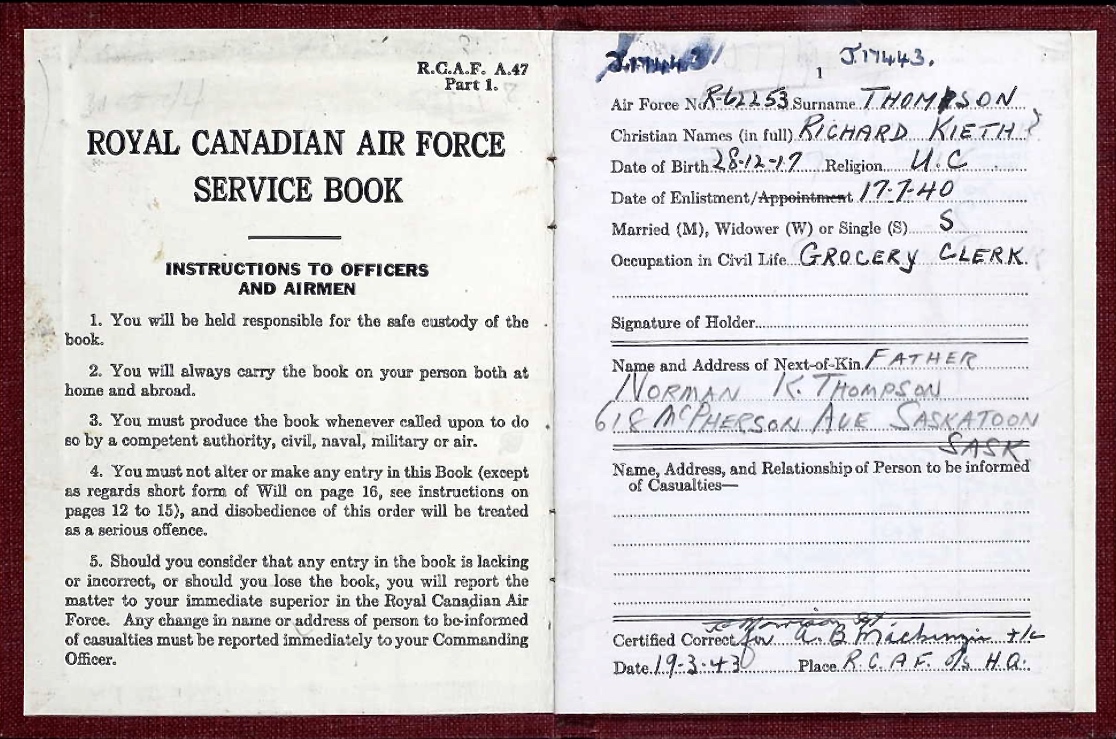 R.C.A.F. A.47
Part 1.
ROYAL CANADIAN AIR FORCE
SERVICE BOOK
INSTRUCTIONS TO OFFICERS
AND AIRMEN
1. You will be held responsible for the safe custody of the
book.
2. You will always carry the book on your person both at
home and abroad.
3. You must produce the book whenever called upon to do
so by a competent authority, civil, naval, military or air.
4. You must not alter or make any entry in this Book (except
as regards short form of Will on page 16, see instructions on
pages 12 to 15), and disobedience of this order will be treated
as a serious offence.
5. Should you consider that any entry in the book is lacking
or incorrect, or should you lose the book, you will report the
matter to your immediate superior in the Royal Canadian Air
Force. Any change in name or address of person to be informed
of casualties must be reported immediately to your Commanding
Officer.
J.17443
1
J.17443.
Air Force No. R-62253 Surname THOMPSON
Christian Names (in full) RICHARD KIETH ?
Date of Birth 28-12-17 Religion U.C
Date of Enlistment/Appointment 17-7-40
Married (M), Widower (W) or Single (S) S
Occupation in Civil Life GROCERY CLERK.
Signature of Holder
Name and Address of Next-of-Kin FATHER
NORMAN K. THOMPSON
618 MCPHERSON AVE SASKATOON
SASK.
Name, Address, and Relationship of Person to be informed
of Casualties—
Certified Correct for A. B. Mackenzie
Date 19-3-43 Place R.C.A.F. o/s H.Q.